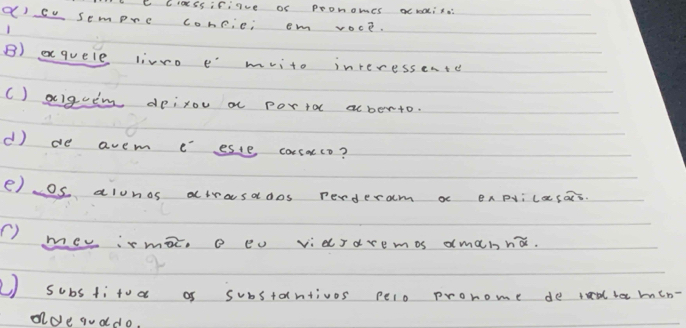 e classifique os pronomes abaixo:
a) eu sempre confiei em você.
B) aquele livro é muito interessente
c) alguém deixou a porta aberto.
d) de quem é este casacco?
e) os alunos atrasados perderam a explicasãs.
f) meu irmão e eu viajaremos amanhã.
substitua os substantivos pelo pronome de tratamen-
adequado.